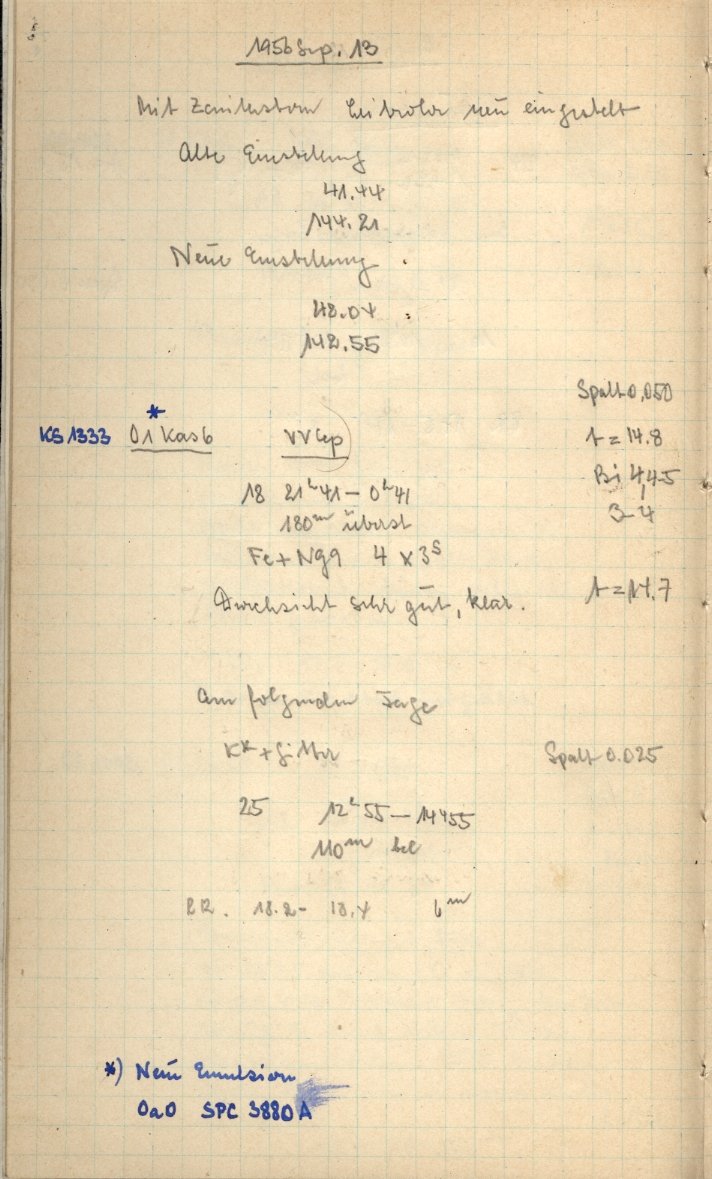 1956 Sep. 13
Mit Zenitstern Leitrohr neu eingestellt
Alte Einstellung
41.44
144.21
Neue Einstellung
48.04
142.55
Spalt 0,050
KS 1333 01 Kas 6 * VV Cep t = 14.8
Bi 4,45
18 21h41 – 0h41 3-4
180m überst
Fe + Ng9 4 x 3s
Durchsicht sehr gut, klar. t = 14.7
Am folgenden Tage
KK + Gitter Spalt 0.025
25 12h55 – 14h55
110m bel
18.2 –
6m
*) Neue Emulsion
OaO SPC 3880A